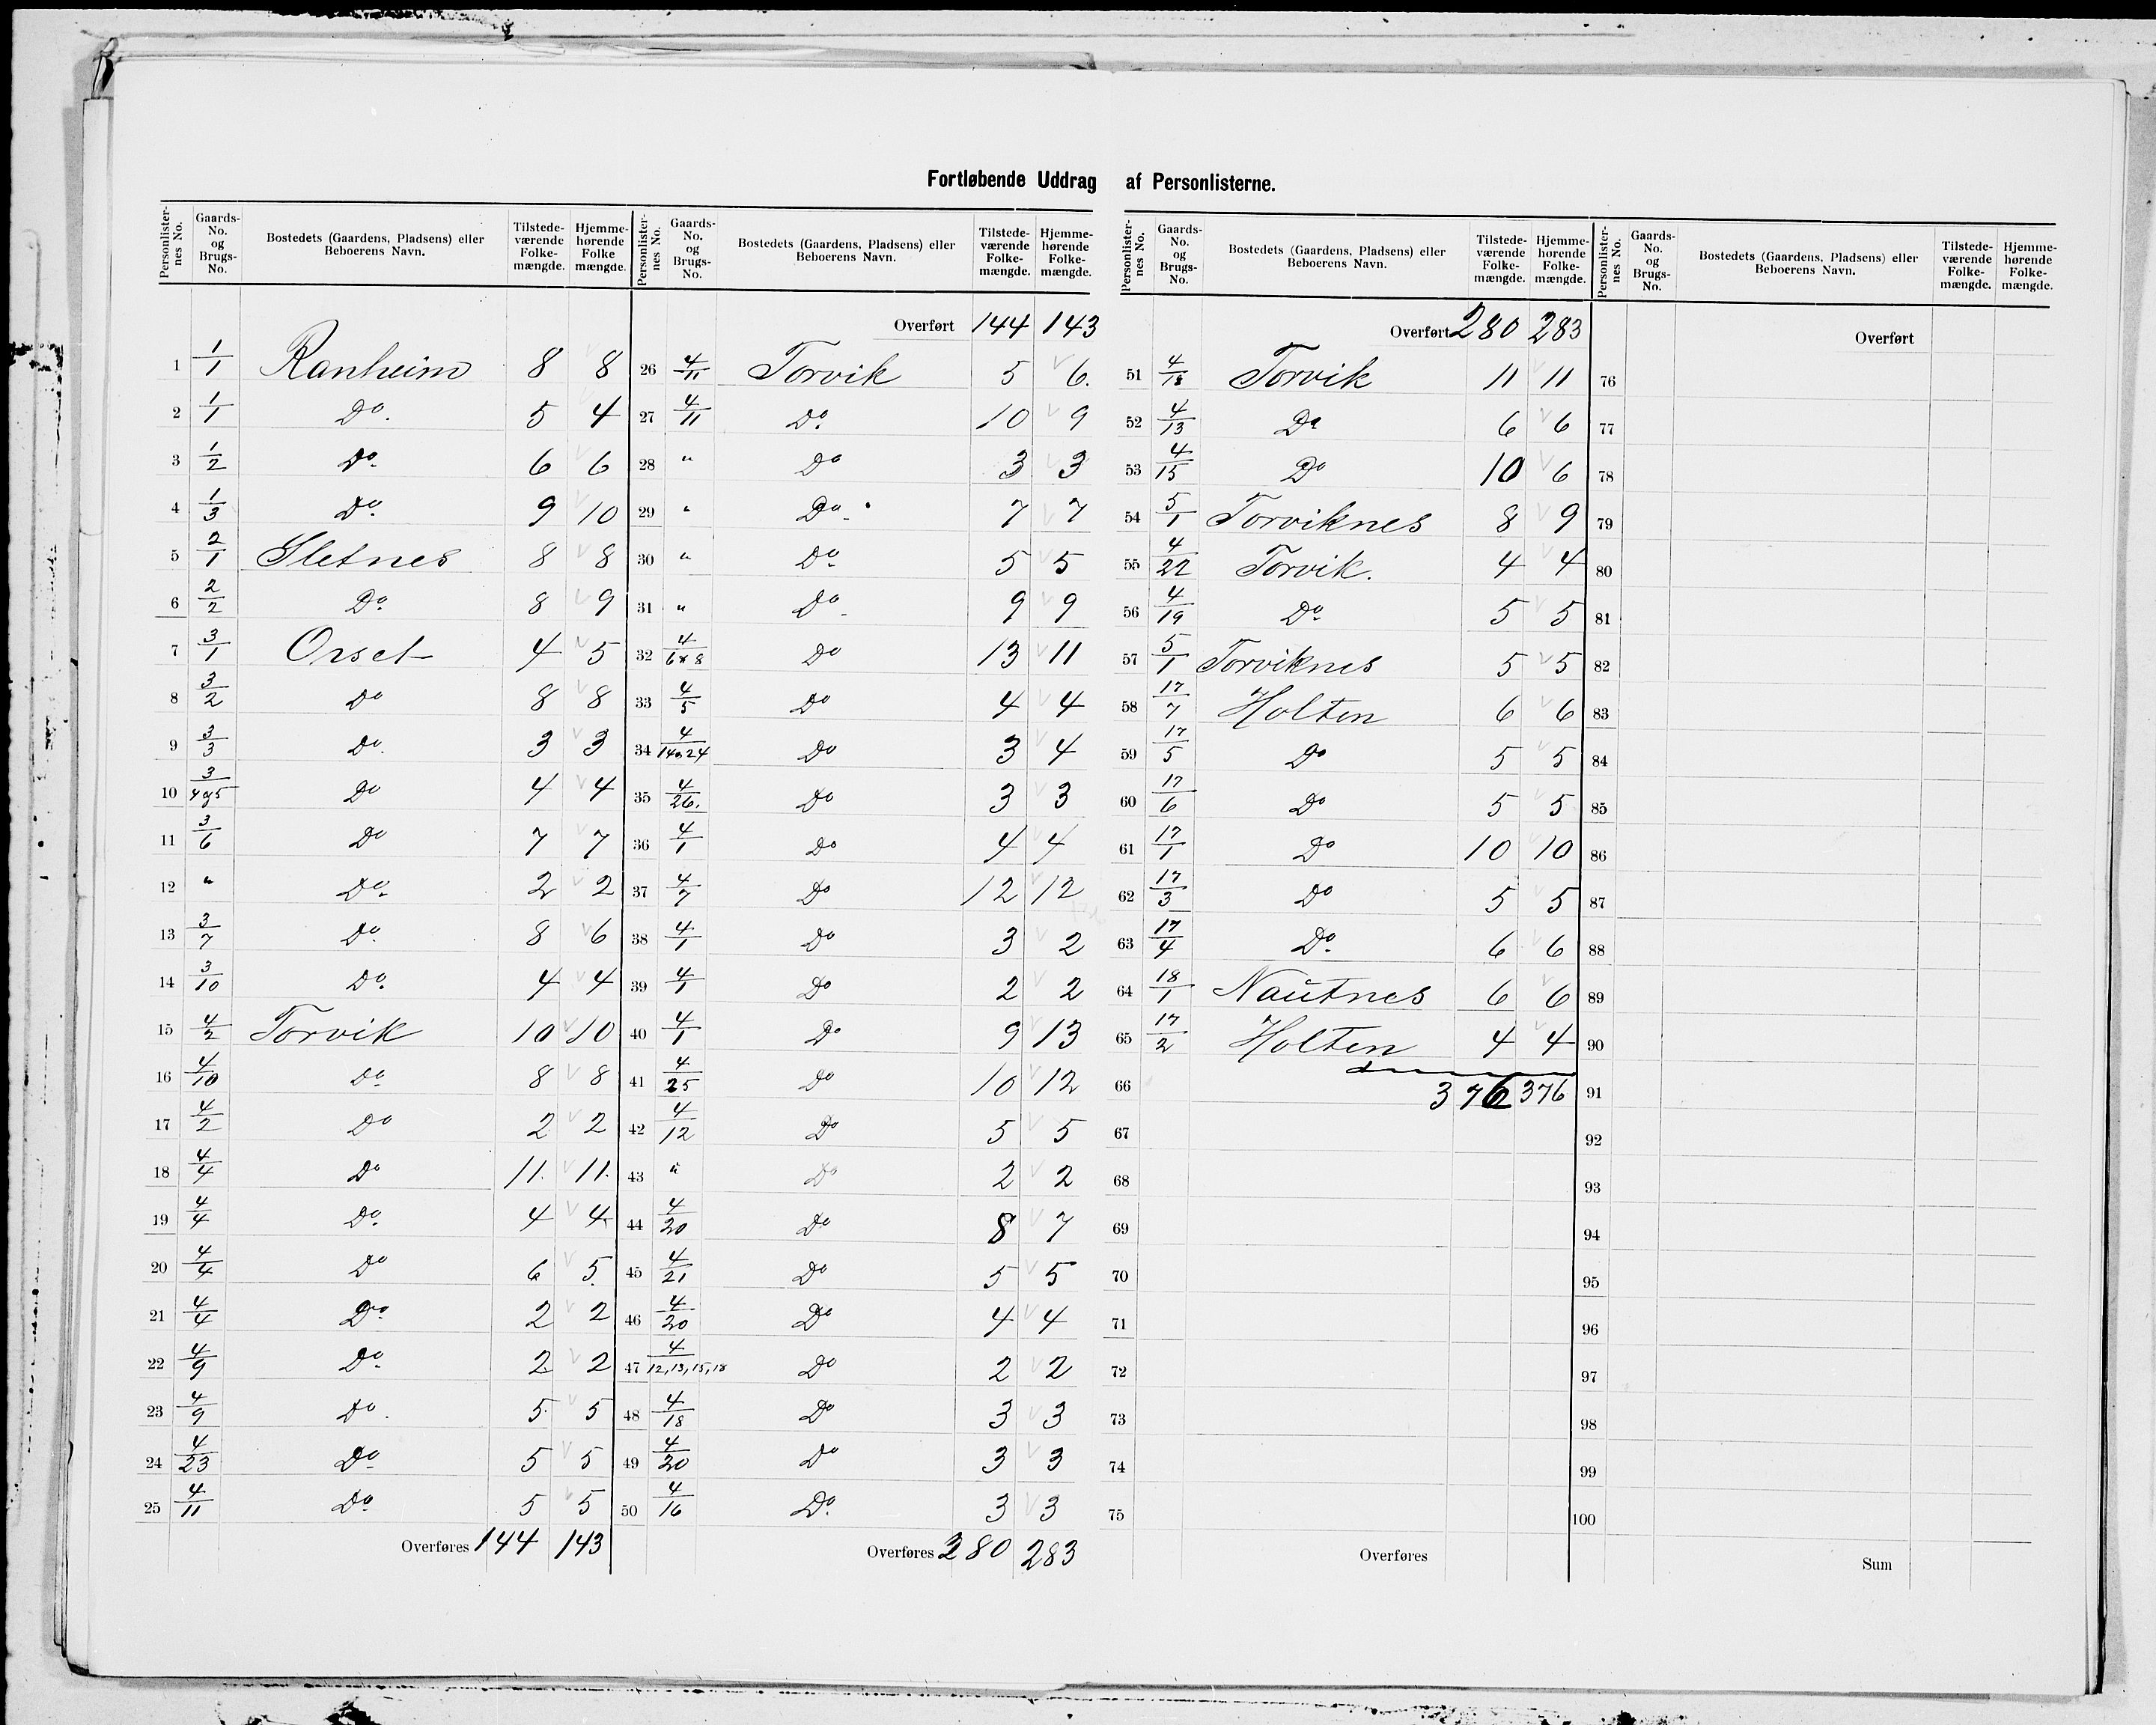 Fortløbende Uddrag af Personlisterne.
Personlister-nes No. Gaards-No. og Brugs-No. Bostedets (Gaardens, Pladsens) eller Beboerens Navn. Tilstede-værende Folke-mængde. Hjemme-hørende Folke mængde.
1 1/1 Ranheim 8 8
2 1/1 Do. 5 4
3 1/2 Do. 6 6
4 1/3 Do. 9 10
5 2/1 Sletnes 8 8
6 2/2 Do. 8 9
7 3/1 Orset 4 5
8 3/2 Do 8 8
9 3/3 Do. 3 3
10 3/4og5 Do 4 4
11 3/6 Do 7 7
12 " Do. 2 2
13 3/7 Do. 8 6
14 3/10 Do. 4 4
15 4/2 Torvik 10 10
16 4/10 Do. 8 8
17 4/2 Do 2 2
18 4/4 Do 11. 11.
19 4/4 Do. 4 4
20 4/4 Do 6 5.
21 4/4 Do. 2 2
22 4/9 Do. 2 2
23 4/9 Do. 5 5
24 4/23 Do. 5 5
25 4/11 Do. 5 5
Overføres 144 143
Personlister-nes No. Gaards-No. og Brugs-No. Bostedets (Gaardens, Pladsens) eller Beboerens Navn. Tilstede-værende Folke-mængde. Hjemme-hørende Folke-mængde.
Overført 144 143
26 4/11 Torvik 5 6.
27 4/11 Do. 10 9
28 " Do 3 3
29 " Do. 7 7
30 " Do. 5 5
31 " Do. 9 9
32 4/6&8 Do 13 11
33 4/5 Do 4 4
34 4/14og24 Do 3 4
35 4/26. Do 3 3
36 4/1 Do 4 4
37 4/7 Do 12 12
38 4/1 Do 3 2
39 4/1 Do 2 2
40 4/1 Do 9 13
41 4/25 Do 10 12
42 4/12 Do 5 5
43 " Do 2 2
44 4/20 Do 8 7
45 4/21 Do 5 5
46 4/20 Do 4 4
47 4/12,13,15,18 Do 2 2
48 4/18 Do 3 3
49 4/20 Do 3 3
50 4/16 Do. 3 3
Overføres 280 283
Personlister-nes No. Gaards-No. og Brugs-No. Bostedets (Gaardens, Pladsens) eller Beboerens Navn. Tilstede-værende Folke-mængde. Hjemme-hørende Folke-mængde.
Overført 280 283
51 4/18 Torvik 11 11
52 4/13 Do 6 6
53 4/15 Do 10 6
54 5/1 Torviknes 8 9
55 4/22 Torvik. 4 4
56 4/19 Do. 5 5
57 5/1 Torviknes 5 5
58 17/7 Holten 6 6
59 17/5 Do 5 5
60 17/6 Do 5 5
61 17/1 Do 10 10
62 17/3 Do 5 5
63 17/4 Do. 6 6
64 18/1 Nautnes 6 6
65 17/2 Holten 4 4
66 376 376
67
68
69
70
71
72
73
74
75
Overføres
Personlister-nes No. Gaards-No. og Brugs-No. Bostedets (Gaardens, Pladsens) eller Beboerens Navn. Tilstede-værende Folke-mængde. Hjemme-hørende Folke-mængde.
Overført
76
77
78
79
80
81
82
83
84
85
86
87
88
89
90
91
92
93
94
95
96
97
98
99
100
Sum